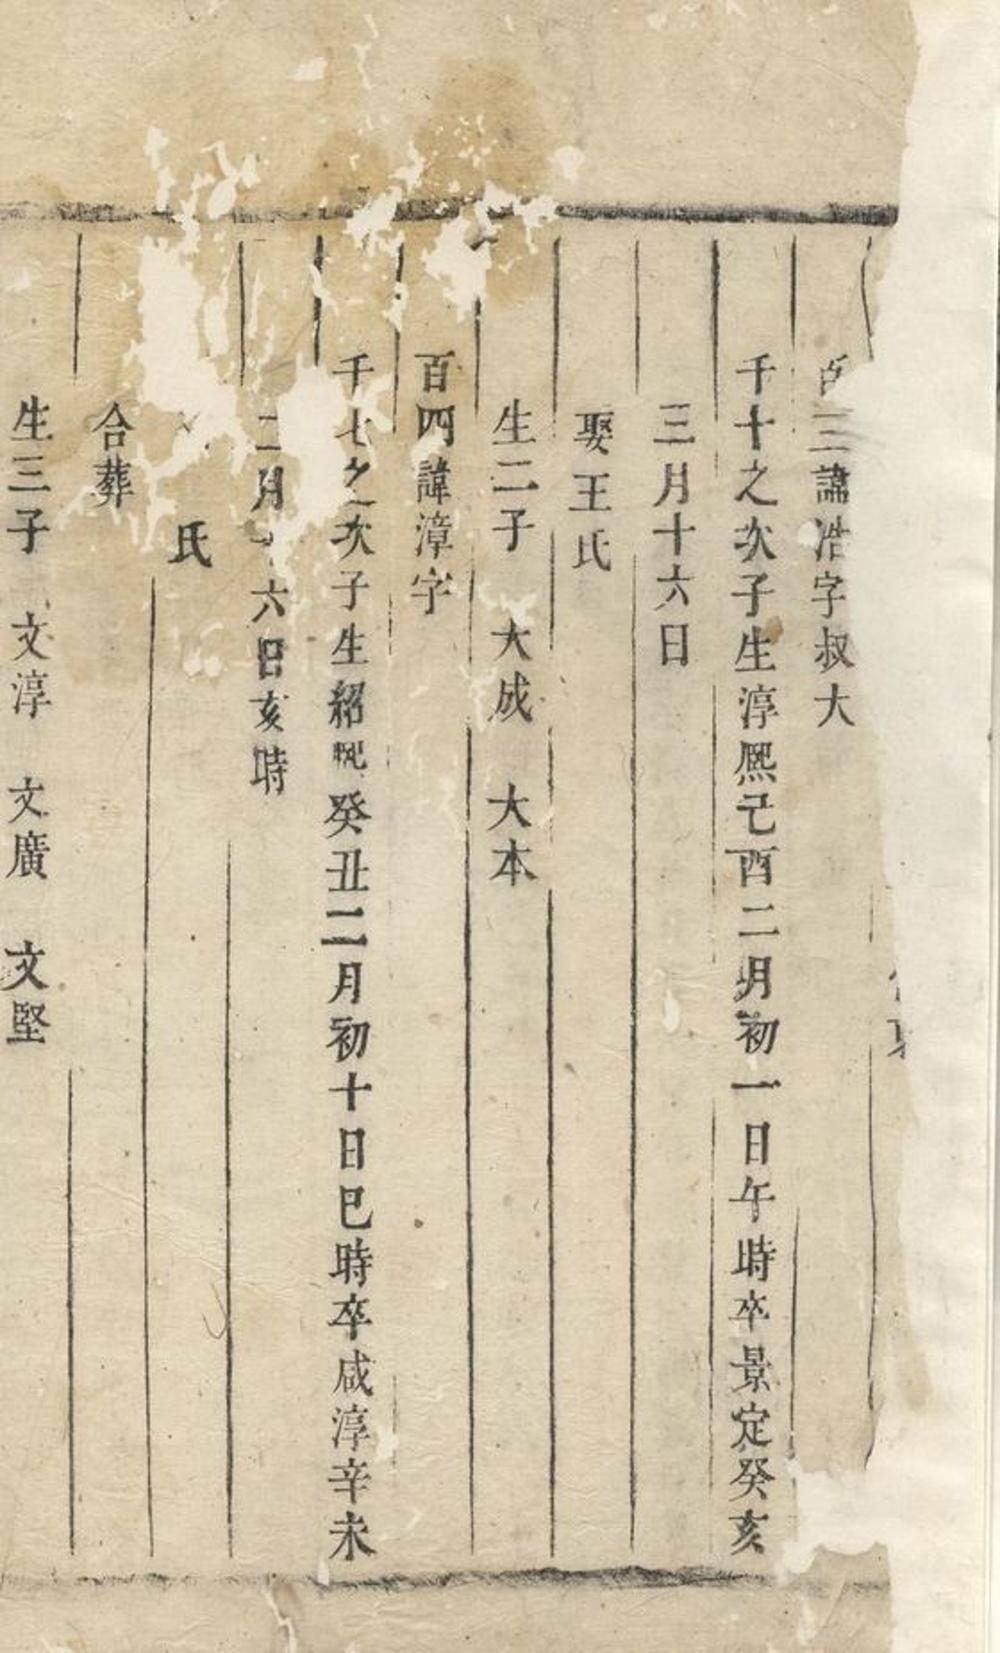 百三諱浩字叔大
千十之次子生淳熈己酉二月初一日午時卒景定癸亥
三月十六日
娶王氏
生二子　大成　大本
百四諱漳字
千七之次子生紹熙癸丑二月初十日巳時卒咸淳辛未
二月十六日亥時
氏
合葬
生三子　文淳　文廣　文堅